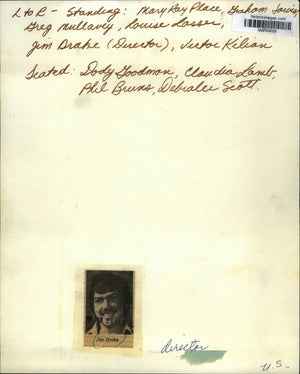 L to R - Standing: Mary Kay Place, Graham Jarvis
Greg Mullavey, Louise Lasser,
Jim Drake (Director), Victor Kilian
Seated: Dody Goodman, Claudia Lamb,
Phil Bruns, Debralee Scott.
Jim Drake
director
U.S.